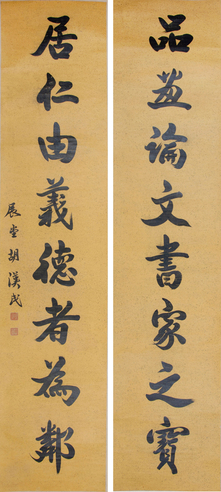 品畫論文書家之寶
居仁由義德者為鄰
展堂胡漢民